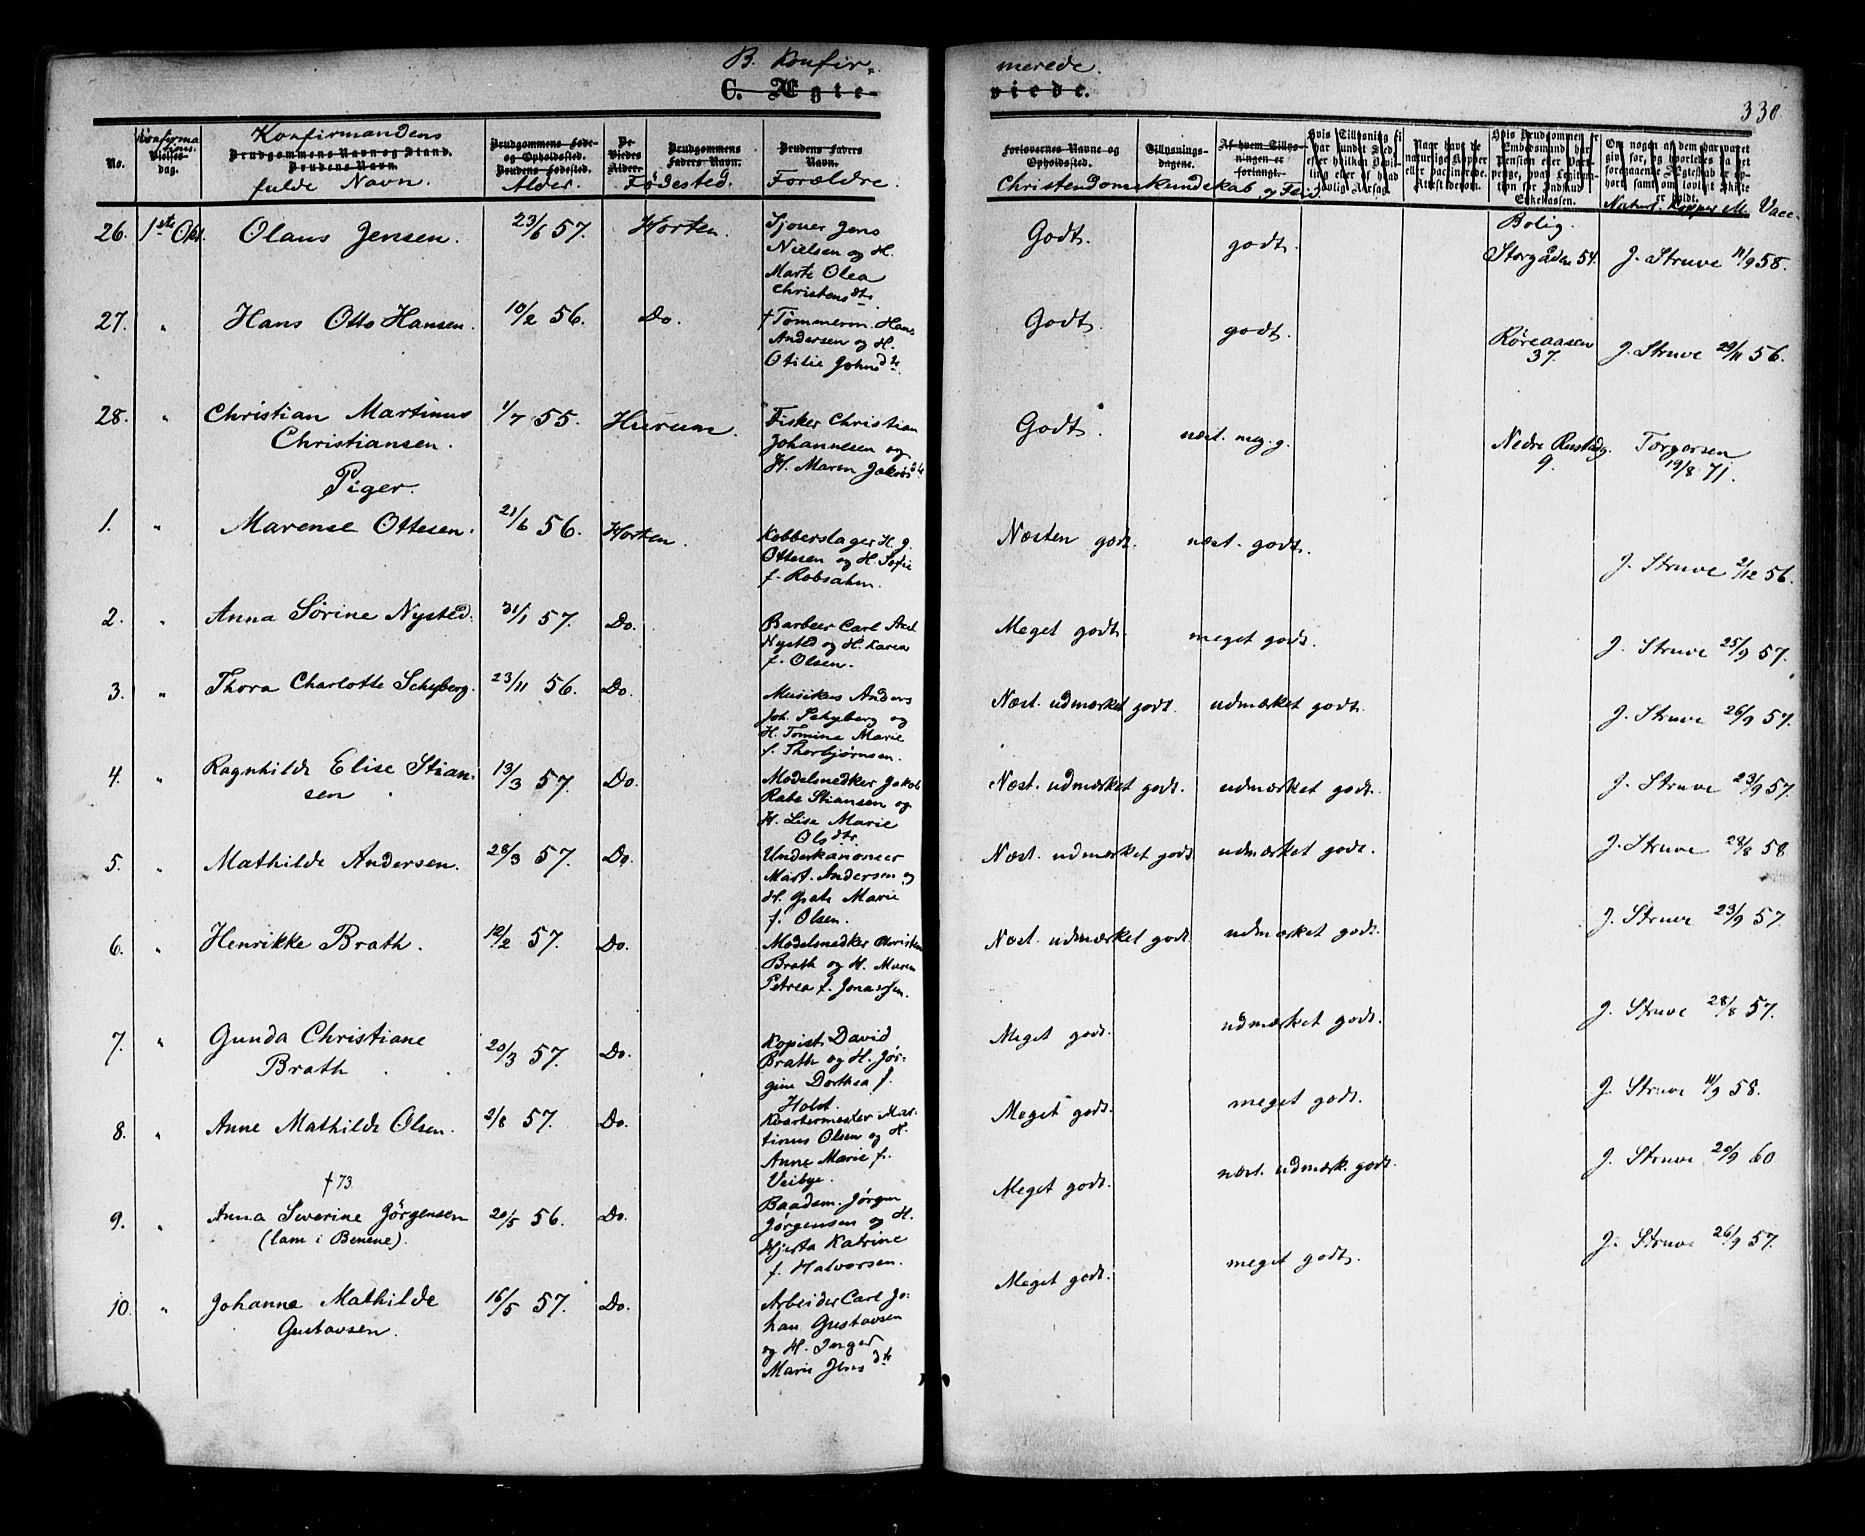 B. Konfir-
merede.
C. Ægte-
viede.
330
No.
Konfirma
tions
Vielses-
dag.
Konfirmandens
Brudgommens Navn og Stand.
Brudens Navn.
fulde Navn.
Brudgommens Føde-
og Opholdssted.
Brudens Fødested.
Alder.
De
Viedes
Alder.
Brudgommens
Faders Navn.
Fødested.
Brudens Faders
Navn.
Forældre.
Forlovernes Navne og
Opholdssted.
Tillysnings-
dagene.
Af hvem Tillys-
ningen er
forlangt.
Christendomskundskab og Flid.
Naar have de
naturlige Kopper
eller vaccinerede.
Attest derom.
Hvis Brudgommen er
Embedsmand, har
Enkekassen.
Naturl. Kopper el. Vacc.
26. 1ste Okt. Olaus Jensen. 23/6 57. Horten. Tjoner Jens
Nielsen og H.
Marte Olea
Christensdtr.
Godt. godt. Bolig.
Storgaden 54. J. Struve 11/9 58.
27. " Hans Otto Hansen. 10/2 56. Do. † Tømmerm. Hans
Andersen og H.
Otilie Johnsdtr.
Godt. godt. Røreaasen
37. J. Struve 29/11 56.
28. " Christian Martinus
Christiansen. 1/7 55. Hurum. Fisker Christian
Johannesen og
H. Maren Jakobsdtr
Godt. næst. meg. g. Nedre Rustadg.
9. Torgersen
19/8 71.
Piger.
1. " Marense Ottesen. 21/6 56. Horten. Kobberslager H. g.
Ottesen og H. Sofie
f. Robsahm.
Næsten godt. næst. godt. J. Struve 2/12 56.
2. " Anna Sørine Nysted. 31/1 57. Do. Barbeer Carl Axel
Nysted og H. Karen
f. Olsen.
Meget godt. meget godt. J. Struve 25/9 57.
3. " Thora Charlotte Schyberg. 23/11 56. Do. Musikus Anders
Joh. Schyberg og
H. Tomine Marie
f. Thorbjørnsen.
Næst. udmærket godt. udmæket godt. J. Struve 26/9 57.
4. " Ragnhilde Elise Stian-
sen 13/3 57. Do. Modelsnedker Jakob
Rabe Stiansen og
H. Lise Marie
Olsdtr.
Næst. udmærket godt. udmærket godt. J. Struve 23/9 57.
5. " Mathilde Andersen. 28/3 57. Do. Underkanoneer
Mart. Andersen og
H. Grete Marie
f. Olsen.
Næst. udmærket godt. udmærket godt. J. Struve 28/8 58
6. " Henrikke Brath. 12/2 57. Do. Modelsnedker Christian
Brath og H. Maren
Petrea f. Jonassen.
Næst. udmærket godt. udmærket godt. J. Struve 23/9 57.
7. " Gunda Christiane
Brath 20/3 57. Do. Kopist David
Brath og H. Jør-
gine Dorthea f.
Holst.
Meget godt. udmæket godt. J. Struve 28/8 57.
8. " Anne Mathilde Olsen. 2/8 57. Do. Kvartermester Mar-
tinus Olsen og H.
Anne Marie f.
Veibye.
Meget godt. meget godt. J. Struve 11/9 58.
† 73
9. " Anna Severine Jørgensen
(lam i Benene). 20/5 56. Do. Baadsm. Jørgen
Jørgensen og H.
Hjerta Katrine
f. Halvorsen.
Meget godt. næst. udmærk. godt. J. Struve 20/9 60
10. " Johanne Mathilde
Gustavsen. 16/5 57. Do. Arbeider Carl Jo-
han Gustavsen
og H. Inger
Marie Jensdtr
Meget godt. meget godt. J. Struve 26/9 57.